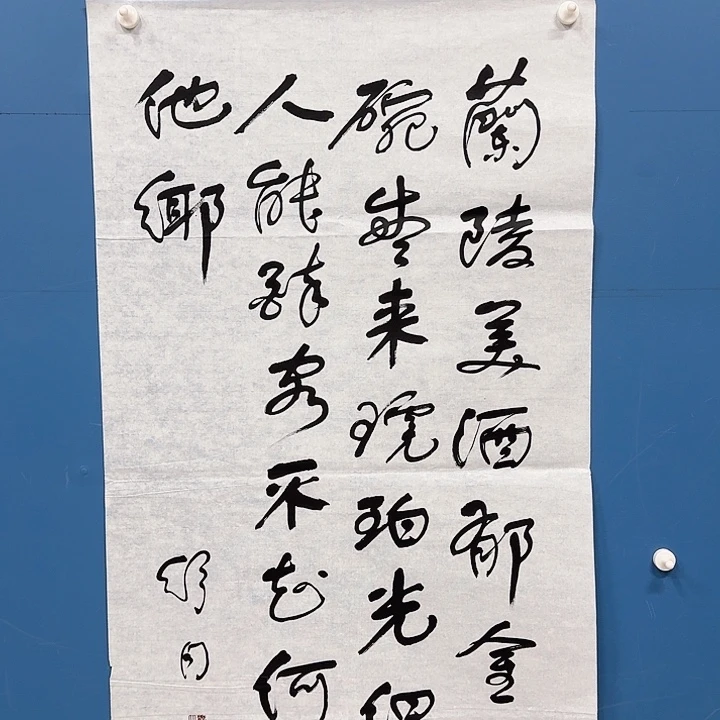 蘭陵美酒郁金
碗盛来琥珀光但
人能醉客不知何
他鄉
舒同